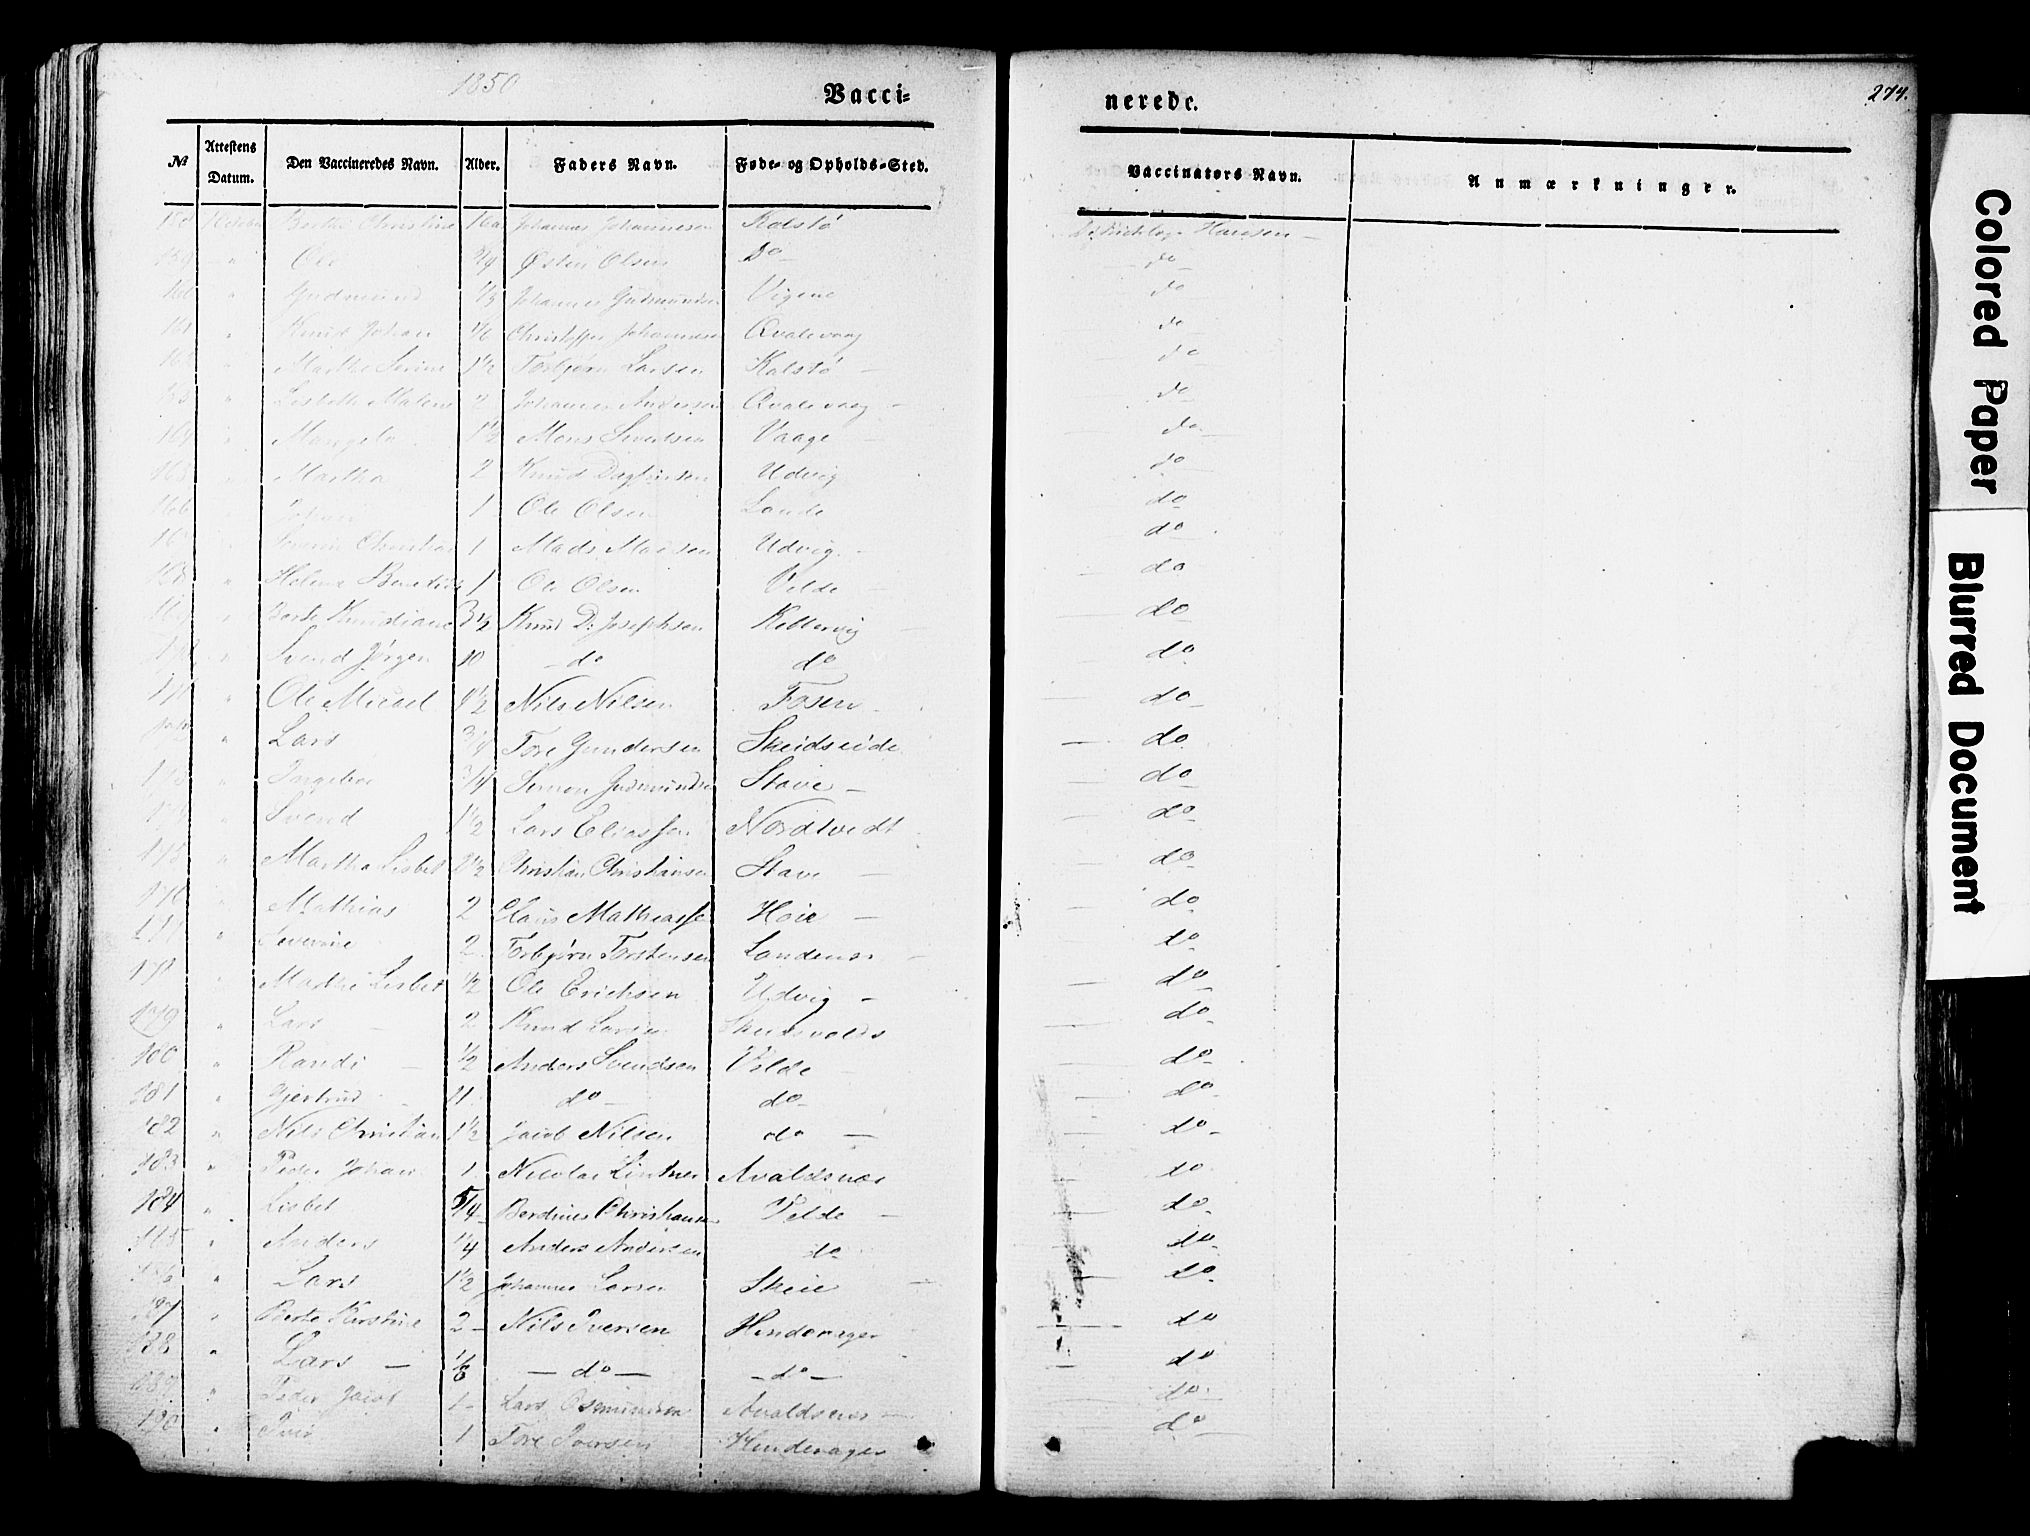 1850
Vacci-
nerede.
274.
№ Attestens Datum. Den Vaccineredes Navn. Alder. Faders Navn. Føde- og Opholds-Sted. Vaccinators Navn. Anmærkninger.
158 Berthe Christine Johannes Johannesen Kalstø Hansen
159 " Ole 3/4 Østen Olsen Do do
160 " Gudmund Johannes Gudmundsen Vigene do
161 " Knud Johan 1/2 Christoffer Johannesen Qvalevaag do
162 " Marthe Serine 1 1/2 Torbjørn Larsen Kalstø do
163 " Lisbeth Malene 2 Johannes Andersen Qvalevaag do
164 " 1 1/2 Mons Sivertsen Vaage do
165 Martha 2 Knud Dagfinsen Udvig do
166 1 Ole Olsen Lande do
167 Christian 1 Mads Madsen Udvig do
168 " Helene 1 Ole Olsen Velde do
169 " Berte Knudiane 3 1/2 Knud D: Josephsen Kellervig do
170 " Svend Jørgen 10 do do do
171 " Ole Micael 1 1/2 Nils Nilsen Fosen do
172 " Lars 3/4 Tore Gundersen Skeidseide do
173 " 3/4 Simon Gudmundsen Stave do
174 " Svend 1 1/2 Lars Eliassen Nordtvedt do
175 " Martha Lisbet 1 1/2 Christian Christiansen Stave do
176 " Mathias 2 Claus Mathiassen Høie do
177 " Severine 2 Torbjørn Torstensen Landenes do
178 " Marthe Lisbet 1/2 Ole Erichsen Udvig do
179 " Lars 2 Knud Larsen do
180 " Randi 1/2 Anders Svendsen Velde do
181 " Gjertrud 11 do do do
182 " Nils Christian 1 1/2 Jacob Nilsen do do
183 " Peder Johan 1 Nicolai Lintner Avaldsnæs do
184 " Lisbet 5/4 Berdines Christiansen Velde do
185 " Anders 1/4 Anders Andersen do do
186 " Lars 1 1/2 Johannes Larsen Skeie do
187 " Berte Kirstine 2 Nils Iversen Hinderager do
188 " Lars 1/6 do do do
189 " Peder Jacob 1 Lars Osmundsen Avaldsnæs do
190 " Iver 1 Tore Iversen Hinderager do
Colored Paper
Blurred Document